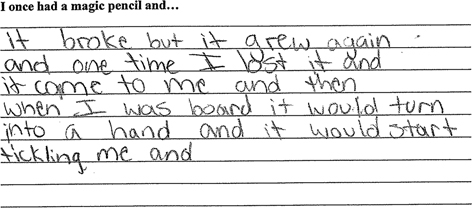 I once had a magic pencil and…
it broke but it grew again
and one time I lost it and
it come to me and then
when I was board it would turn
into a hand and it would start
tickling me and